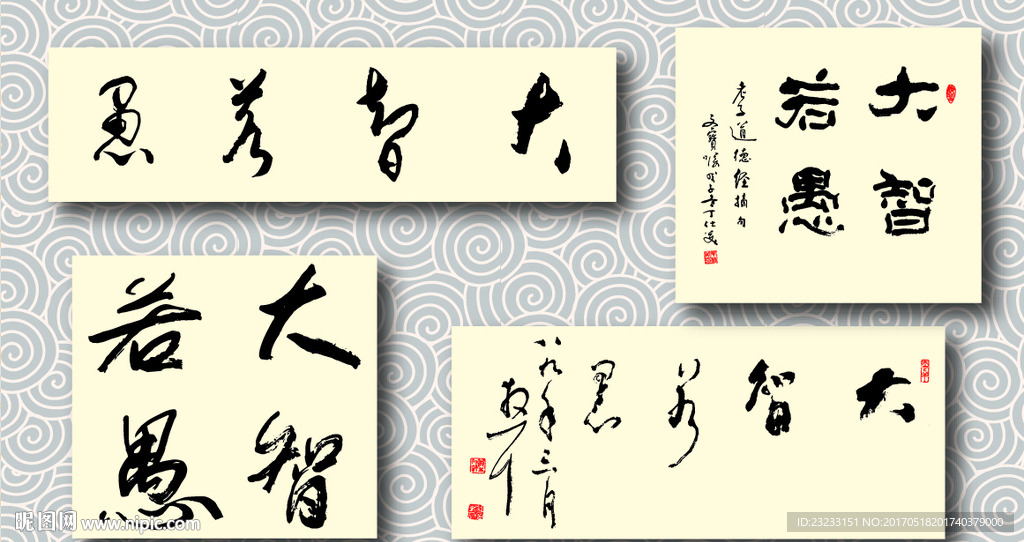 大智若愚
大智
若愚
老子道德经摘句
大智
若愚
大智若愚
八九年三月
昵图网 www.nipic.com
ID:23233151 NO:20170518201740379000